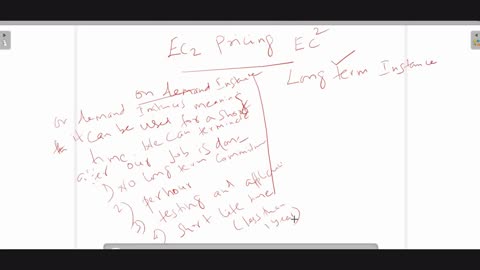 EC2 Pricing EC2
Long Term Instance
on demand Instance
on demand Instances meaning
it can be used for a short
time We can terminate
after our job is done
1) No long term Commission
2) per hour
3) testing and
4) short life time
(less than
1 year)